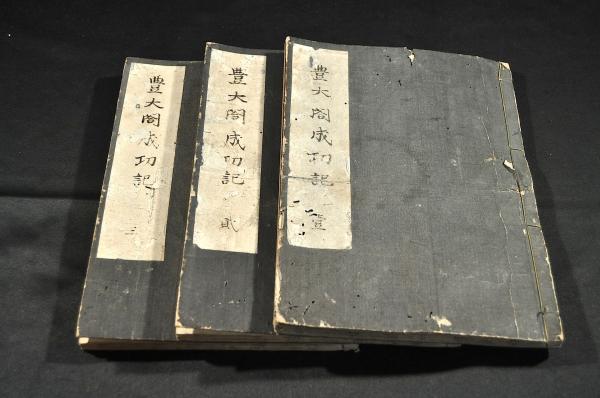 豊大閤成功記 壹
豊大閤成功記 貮
豊大閤成功記 三